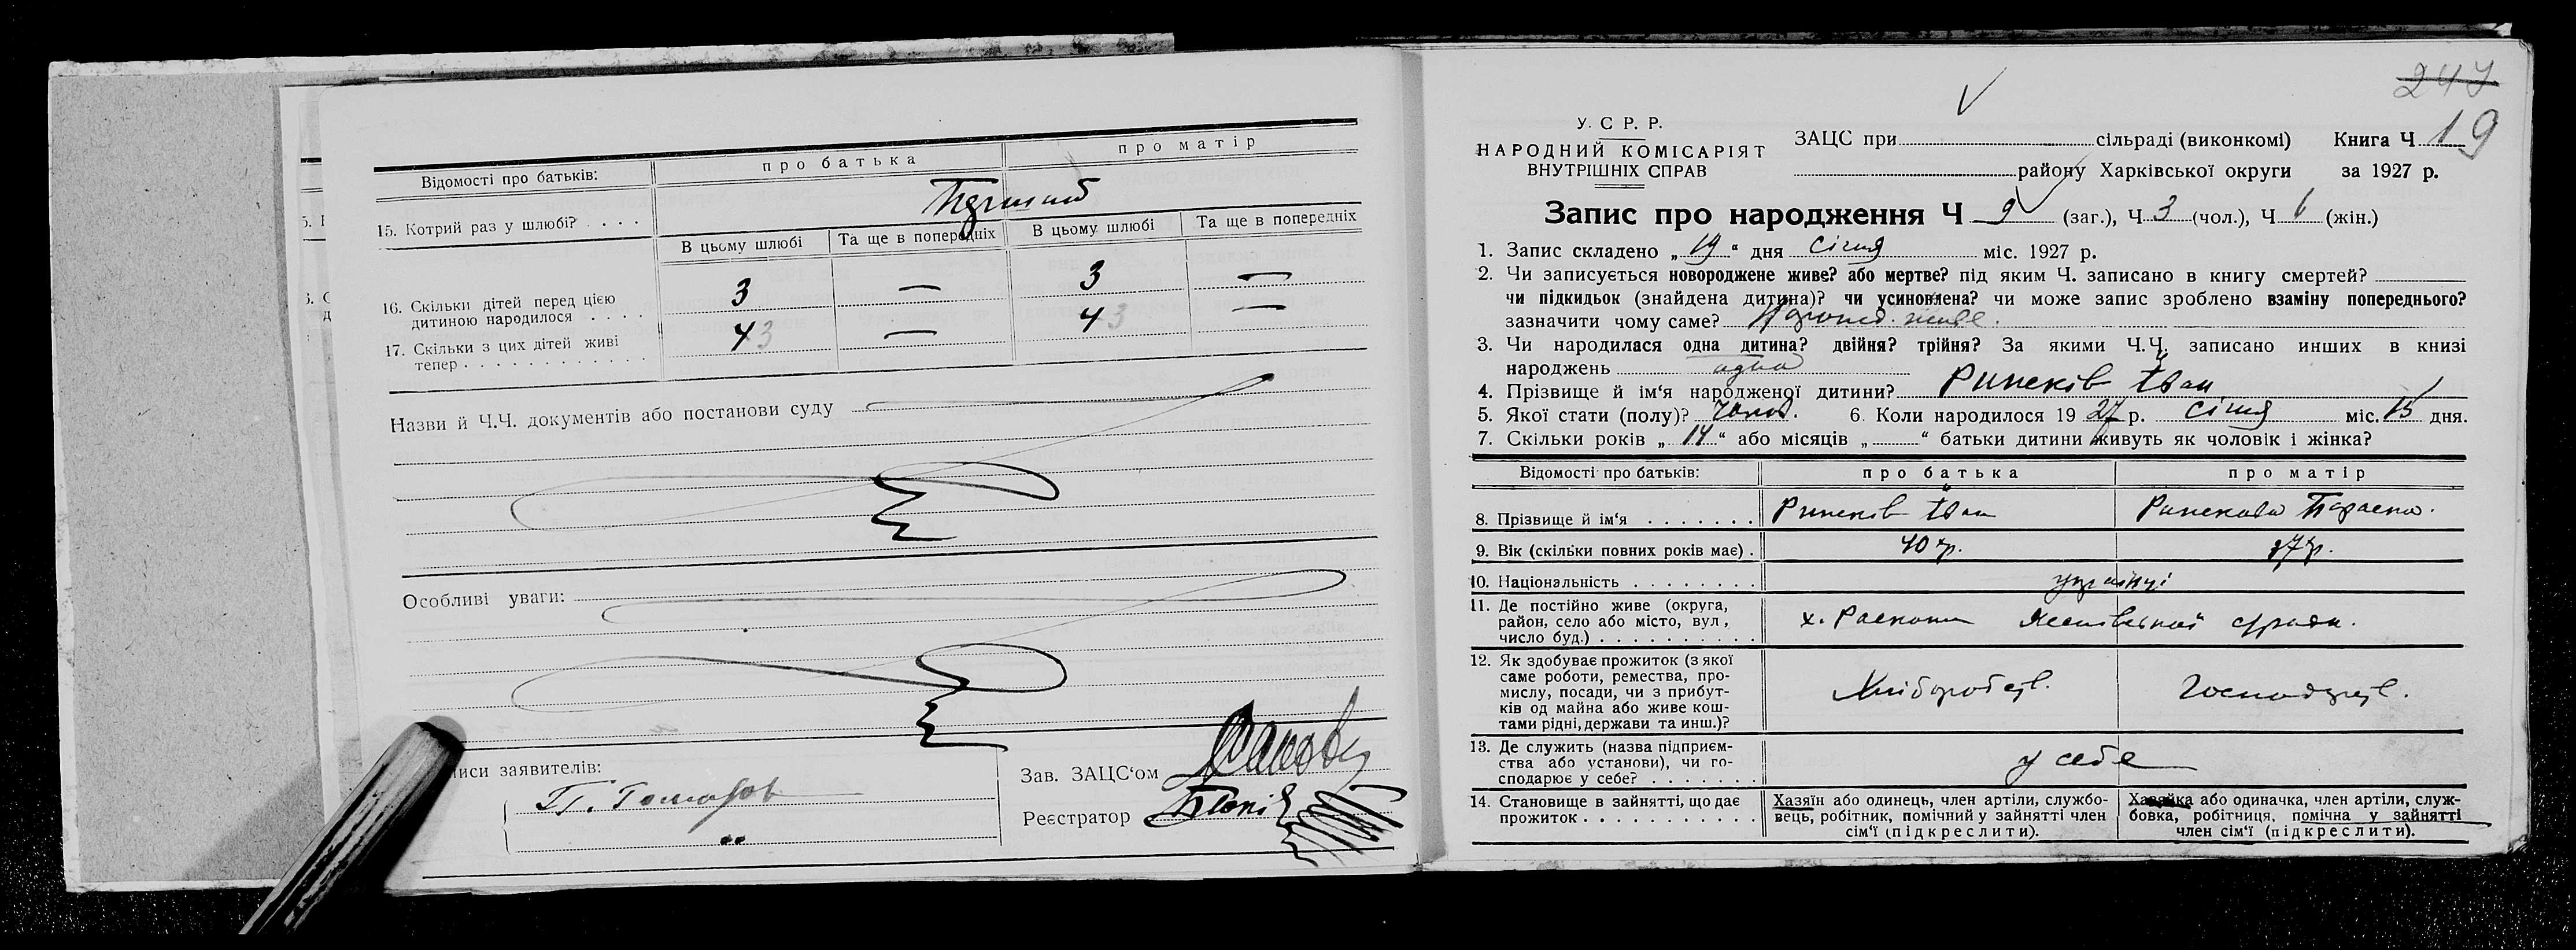 Відомості про батьків:
про батька
про матір
15. Котрий раз у шлюбі? . . . .
Первий
В цьому шлюбі
Та ще в попередніх
В цьому шлюбі
Та ще в попередніх
16. Скільки дітей перед цією
дитиною народилося . . . .
3 — 3 —
17. Скільки з цих дітей живі
тепер . . . . . . . . . . . .
43 — 43 —
Назви й Ч.Ч. документів або постанови суду
Особливі уваги:
иси заявителів:
Зав. ЗАЦС‘ом
Реєстратор
247
19
У. С. Р. Р.
НАРОДНИЙ КОМІСАРІЯТ
ВНУТРІШНІХ СПРАВ
ЗАЦС при сільраді (виконкомі)
району Харківської округи
Книга Ч.
за 1927 р.
Запис про народження Ч 9 (заг.), Ч 3 (чол.), Ч 6 (жін.)
1. Запис складено „19“ дня січня міс. 1927 р.
2. Чи записується новороджене живе? або мертве? під яким Ч. записано в книгу смертей?
чи підкидьок (знайдена дитина)? чи усиновлена? чи може запис зроблено взаміну попереднього?
зазначити чому саме? живе.
3. Чи народилася одна дитина? двійня? трійня? За якими Ч.Ч. записано инших в книзі
народжень одна
4. Прізвище й ім‘я народженої дитини? Рипеків Іван
5. Якої стати (полу)? чолов. 6. Коли народилося 19 27 р. січня міс. 15 дня.
7. Скільки років „14“ або місяців „ “ батьки дитини живуть як чоловік і жінка?
Відомості про батьків:
про батька
про матір
8. Прізвище й ім‘я . . . . . . .
Рипеків Іван
Рипекова Параска.
9. Вік (скільки повних років має) .
40 р.
37 р.
10. Національність . . . . . . . .
українці
11. Де постійно живе (округа,
район, село або місто, вул.,
число буд.) . . . . . . . . . . .
х.
с/ради.
12. Як здобуває прожиток (з якої
саме роботи, ремества, про-
мислу, посади, чи з прибут-
ків од майна або живе кош-
тами рідні, держави та инш.)?
Хлібороб.
Господ.
13. Де служить (назва підприєм-
ства або установи), чи го-
сподарює у себе? . . . . . . .
у себе
14. Становище в зайнятті, що дає
прожиток . . . . . . . . . . . .
Хазяїн або одинець, член артіли, службо-
вець, робітник, помічний у зайнятті член
сім‘ї (підкреслити).
Хазяйка або одиначка, член артіли, служ-
бовка, робітниця, помічна у зайнятті
член сім‘ї (підкреслити).